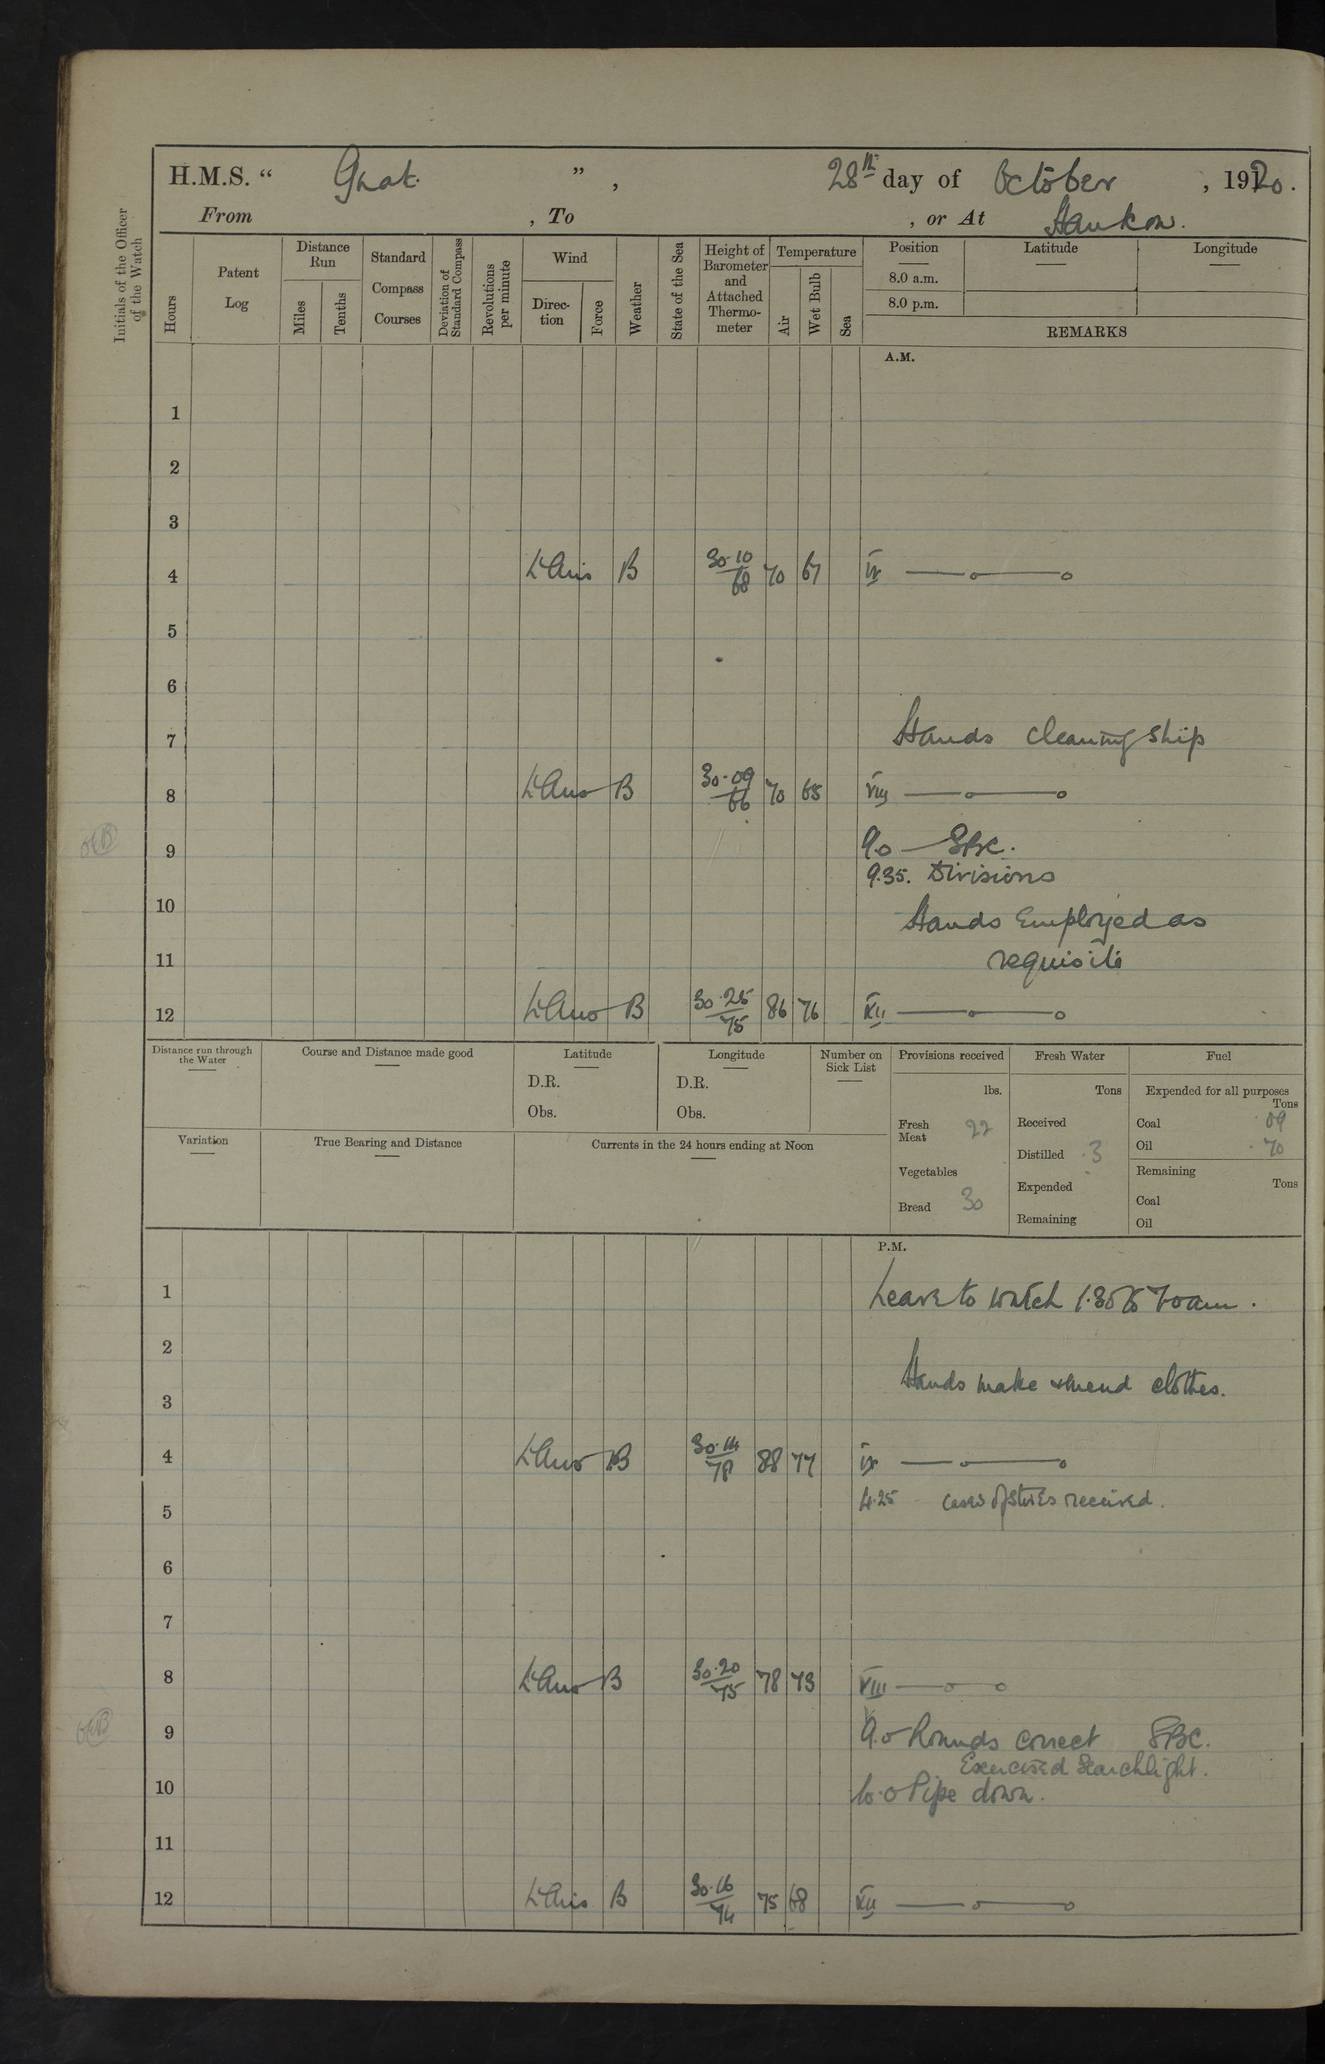 H.M.S. “ Gnat. ” , 28th day of October , 1920.
From , To , or At Hankow.
Initials of the Officer of the Watch
Hours
Patent Log
Distance Run
Miles
Tenths
Standard Compass Courses
Deviation of Standard Compass
Revolutions per minute
Wind
Direction
Force
Weather
State of the Sea
Height of Barometer and Attached Thermo-meter
Temperature
Air
Wet Bulb
Sea
Position Latitude Longitude
8.0 a.m.
8.0 p.m.
REMARKS
A.M.
1
2
3
4 Lt Airs B 30.10 68 70 67 IV
5
6
7 Hands cleaning ship
8 Lt Airs B 30.09 66 70 65 VIII
9 9.0 SBC.
9.35. Divisions
10 Hands Employed as
11 requisite
12 Lt Airs B 30.25 75 86 76 XII
Distance run through the Water
Course and Distance made good
Latitude
D.R.
Obs.
Longitude
D.R.
Obs.
Number on Sick List
Provisions received
lbs.
Fresh Meat 22
Vegetables
Bread 30
Fresh Water
Tons
Received
Distilled .3
Expended
Remaining
Fuel
Expended for all purposes
Tons
Coal .09
Oil .70
Remaining
Tons
Coal
Oil
Variation
True Bearing and Distance
Currents in the 24 hours ending at Noon
P.M.
1 Leave to watch 1.30 to 7.0 am.
2
Hands make & mend clothes.
3
4 Lt Airs B 30.14 78 88 77 IV
4.25 cases of stores received.
5
6
7
8 Lt Airs B 30.20 75 78 73 VIII
9 9.0 Rounds correct SBC.
Exercised Searchlight.
10 10.0 Pipe down.
11
12 Lt Airs B 30.16 74 75 68 XII